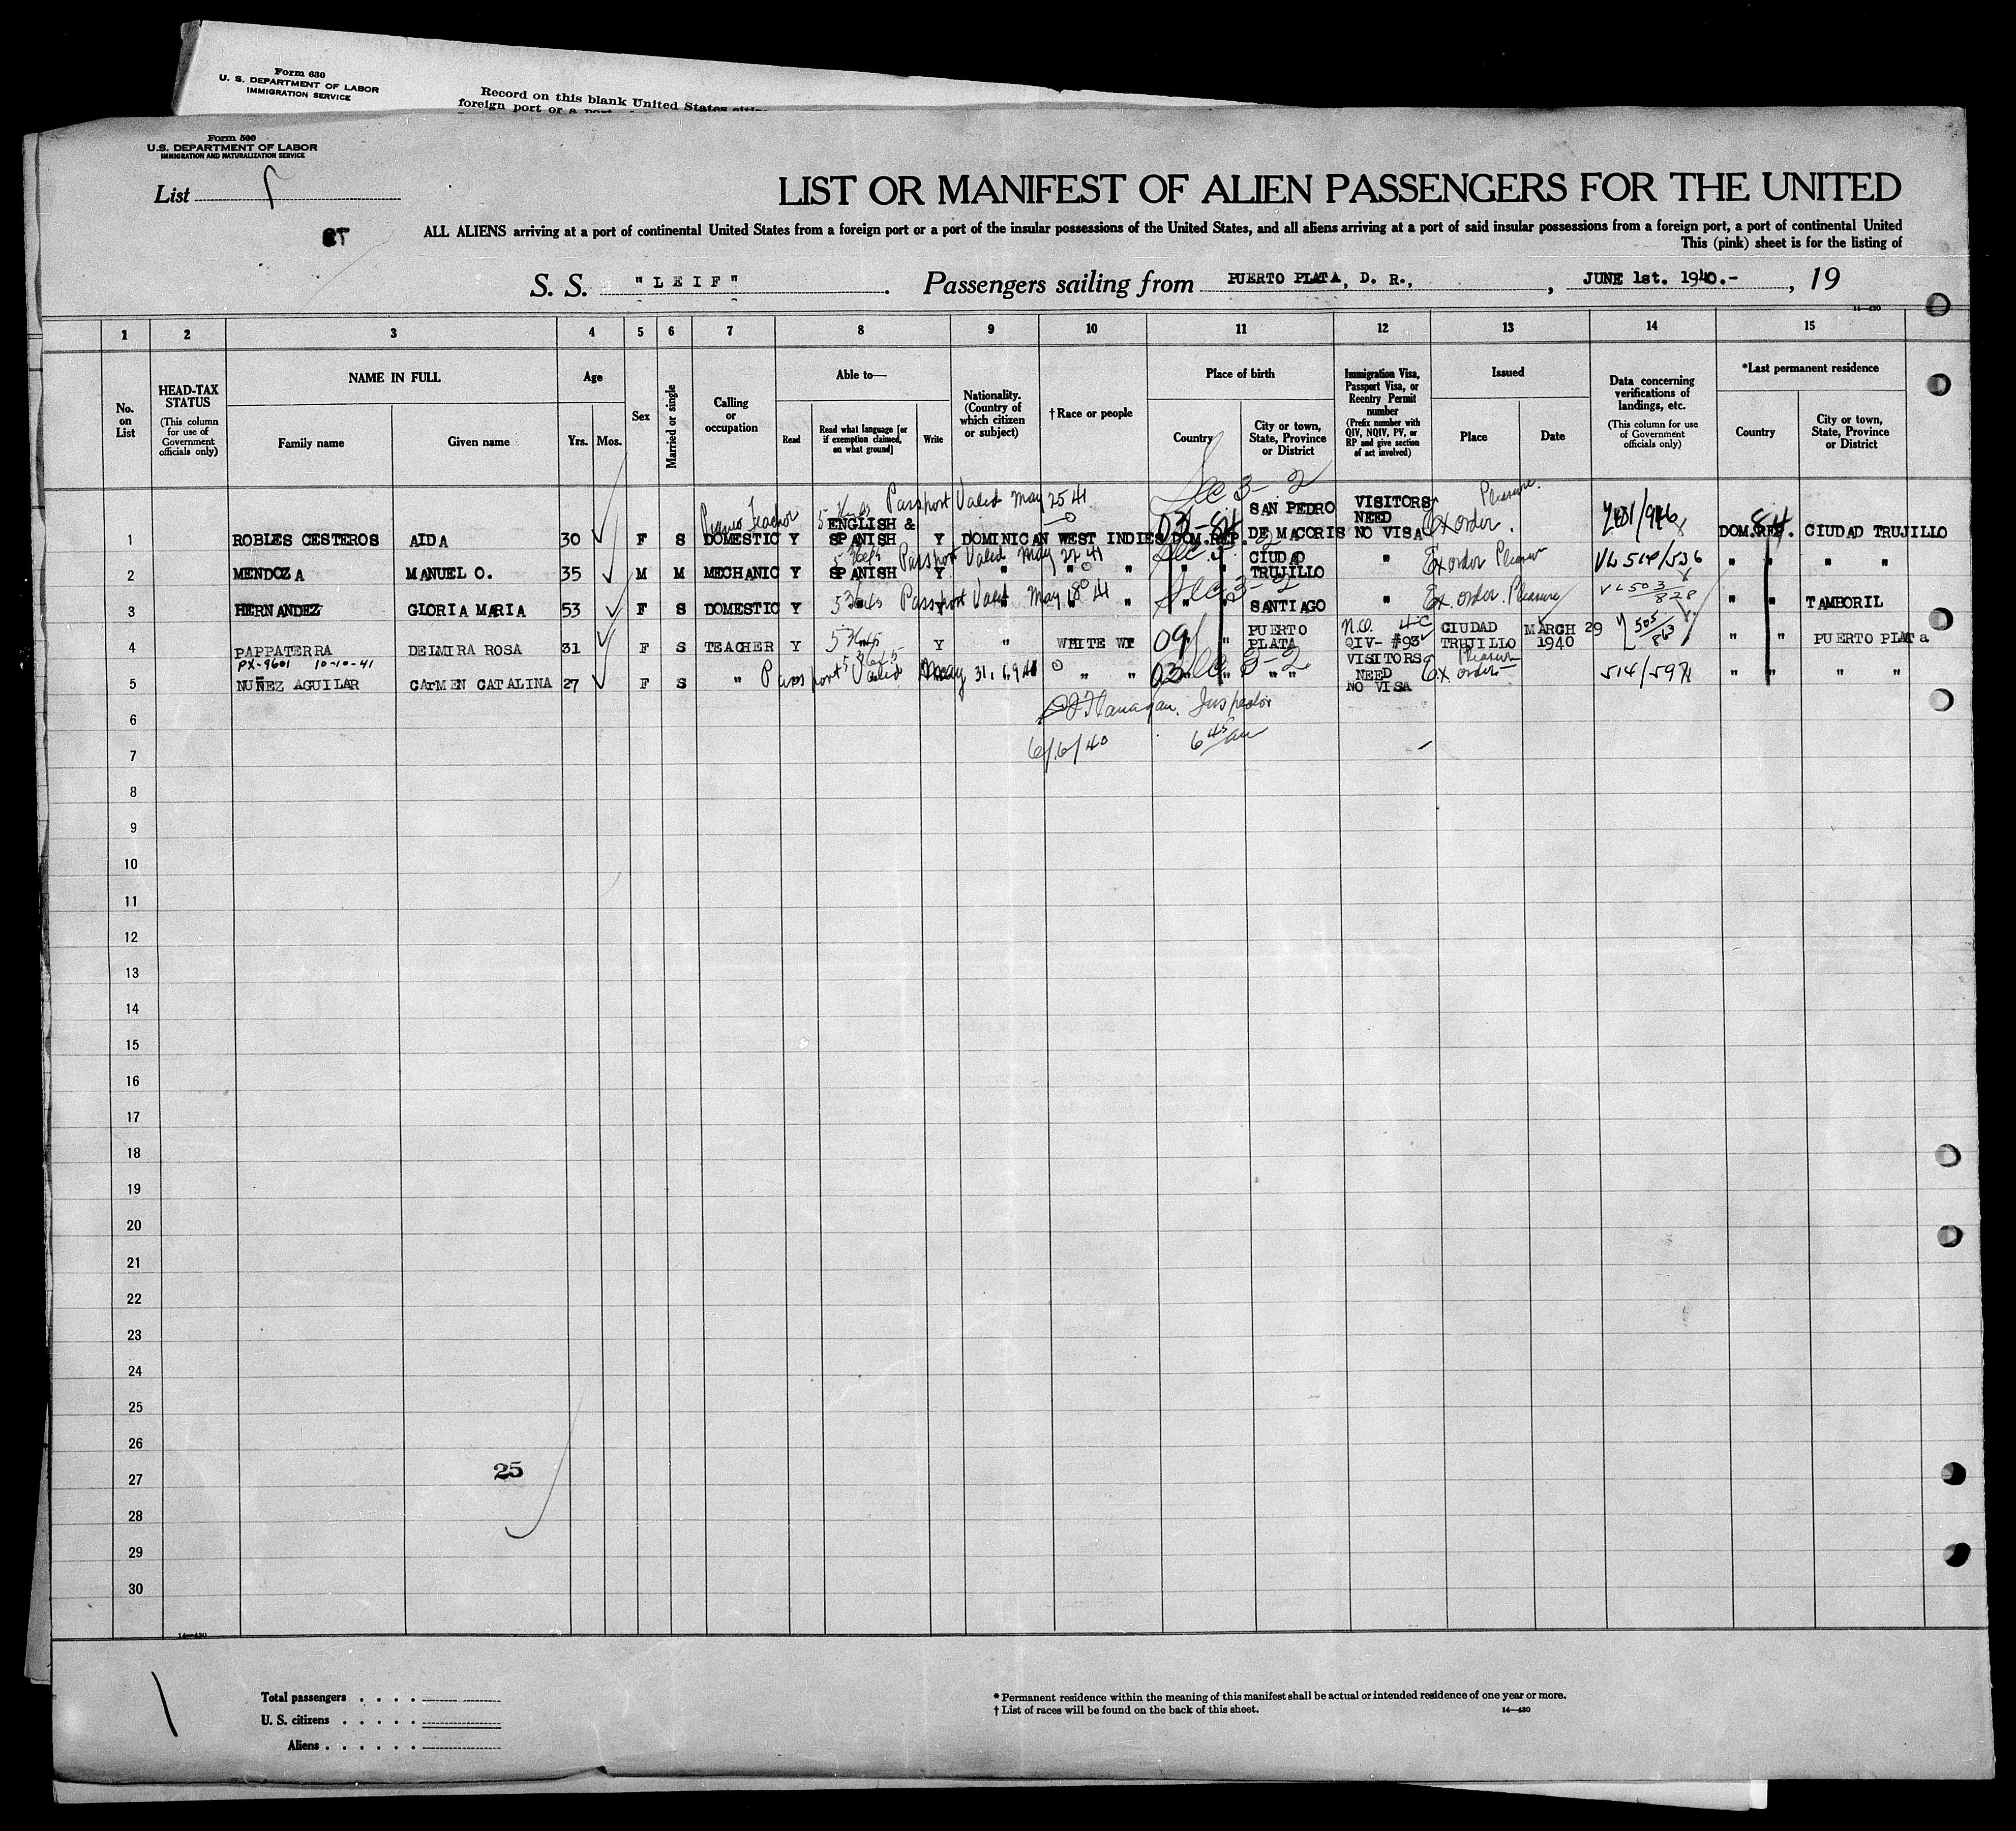 Form 630
U. S. DEPARTMENT OF LABOR
IMMIGRATION SERVICE
Record on this blank United States
foreign port or a port
Form 500
U.S. DEPARTMENT OF LABOR
IMMIGRATION AND NATURALIZATION SERVICE
List
LIST OR MANIFEST OF ALIEN PASSENGERS FOR THE UNITED
ALL ALIENS arriving at a port of continental United States from a foreign port or a port of the insular possessions of the United States, and all aliens arriving at a port of said insular possessions from a foreign port, a port of continental United
This (pink) sheet is for the listing of
S. S. "LEIF". Passengers sailing from PUERTO PLATA, D. R., , JUNE 1st. 1940.- , 19
14—430
1 2 3 4 5 6 7 8 9 10 11 12 13 14 15
No. on List
HEAD-TAX STATUS
(This column for use of Government officials only)
NAME IN FULL
Family name
Given name
Age
Yrs.
Mos.
Sex
Married or single
Calling or occupation
Able to—
Read
Read what language [or if exemption claimed, on what ground]
Write
Nationality. (Country of which citizen or subject)
†Race or people
Place of birth
Country
City or town, State, Province or District
Immigration Visa, Passport Visa, or Reentry Permit number
(Prefix number with QIV, NQIV, PV, or RP and give section of act involved)
Issued
Place
Date
Data concerning verifications of landings, etc.
(This column for use of Government officials only)
*Last permanent residence
Country
City or town, State, Province or District
Piano Teacher Passport Valid May 25 41 Sec 3-2 Pleasure
1 ROBLES CESTEROS AIDA 30 F S DOMESTIC Y ENGLISH & SPANISH Y DOMINICAN WEST INDIES DOM.REP. 03-84 SAN PEDRO DE MACORIS VISITORS NEED NO VISA Ex order. DOM.REP. 84 CIUDAD TRUJILLO
Passport Valid May 22 41
2 MENDOZA MANUEL O. 35 M M MECHANIC Y SPANISH Y " " " " " CIUDAD TRUJILLO " Ex order Pleasure VL 514/536 " " " "
3 HERNANDEZ GLORIA MARIA 53 F S DOMESTIC Y Passport Valid May 18 41 Y " " " " " Sec 3-2 SANTIAGO " Ex. order Pleasure VL 503/828 " " TAMBORIL
4 PAPPATERRA DELMIRA ROSA 31 F S TEACHER Y Y " WHITE WI 09 " " PUERTO PLATA QIV- #93 CIUDAD TRUJILLO MARCH 29 1940 505/863 " " PUERTO PLATa
PX-9601 10-10-41
5 NUÑEZ AGUILAR CARMEN CATALINA 27 F S " Passport Valid May 31. " " 03 " " Sec 3-2 " " VISITORS NEED NO VISA Ex. order Pleasure 514/597 " " " "
6 Flanagan. Inspector
7 6/6/40 6 45 am
8
9
10
11
12
13
14
15
16
17
18
19
20
21
22
23
24
25
26
27 25
28
29
30
14—430
Total passengers . . . .
U. S. citizens . . . . .
Aliens . . . . . .
* Permanent residence within the meaning of this manifest shall be actual or intended residence of one year or more.
† List of races will be found on the back of this sheet.
14—430